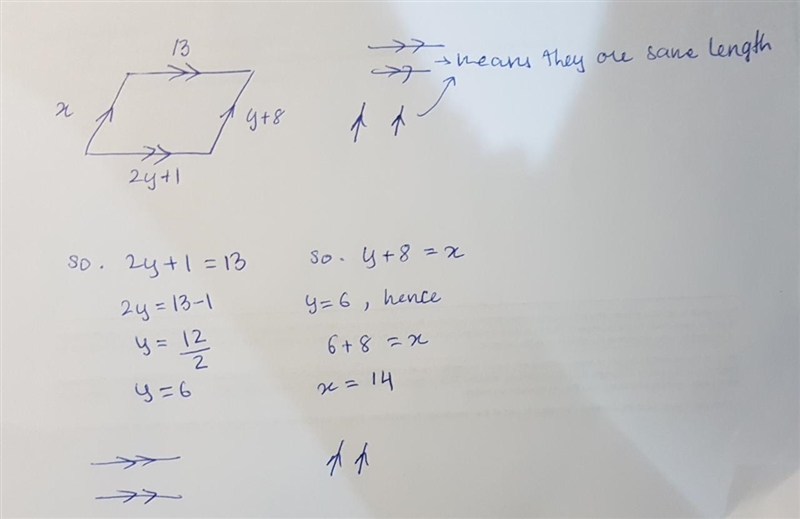 13
x
y+8
2y+1
→ means they are same length
so. 2y+1 = 13
2y = 13-1
y = 12/2
y = 6
so. y+8 = x
y=6, hence
6+8 = x
x = 14